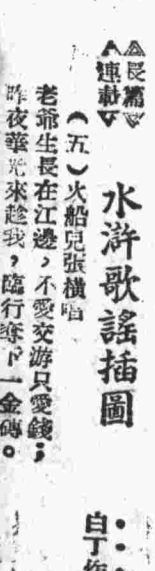 長篇
連載
水滸歌謠插圖
白丁作
（五）火船兒張橫唱
老爺生長在江邊，不愛交游只愛錢；
昨夜華光來趁我，臨行奪下一金磚。